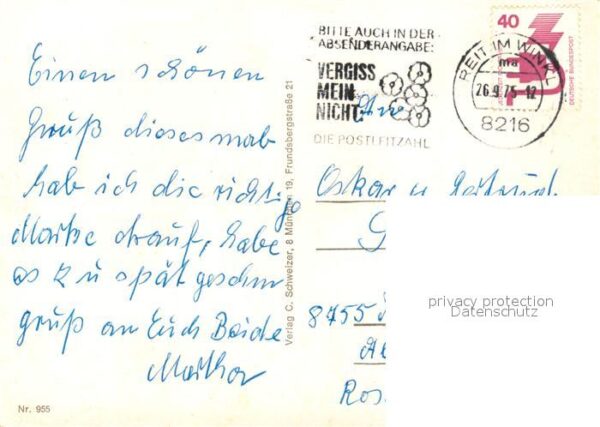 Einen schönen
Gruß dieses mal
hab ich die richtige
Marke drauf, habe
es zu spät gesehen
gruß an Euch Beide
Martha
Nr. 955
Verlag C. Schweizer, 8 München 19, Frundsbergstraße 21
BITTE AUCH IN DER
ABSENDERANGABE:
VERGISS
MEIN
NICHT
DIE POSTLEITZAHL
REIT IM WINKL
ma
26.9.75-12
8216
40
DEUTSCHE BUNDESPOST
An
Oskar u
G
8755
Ros
privacy protection
Datenschutz